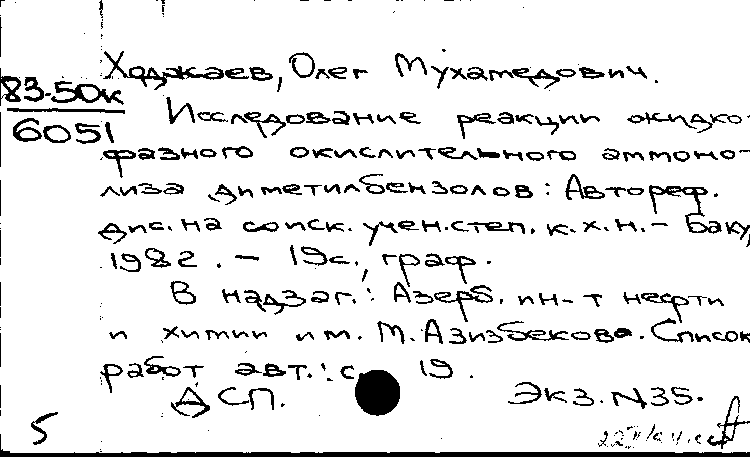 Ходжаев, Олег Мухамедович.
83-50к
6051
Исследование реакции жидко-
фазного окислительного аммоно-
лиза диметилбензолов: Автореф.
дис. на соиск. учен. степ. к.х.н. - Баку,
1982. - 19с., граф.
В надзаг.: Азерб. ин-т нефти
и химии им. М. Азизбекова. Список
работ авт.: с. 19.
ДСП. Экз. N35.
5